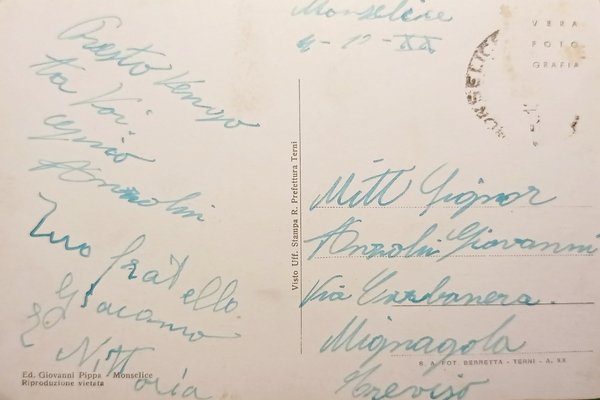 Monselice
4-10-XX
VERA
FOTO
GRAFIA
MONSELICE
Presto Vengo
tra Voi
Anzolin
Tuo fratello
Giacomo
E Vittoria
Mitt Signor
Anzolin Giovanni
Via
Mignagola
Treviso
Visto Uff. Stampa R. Prefettura Terni
Ed. Giovanni Pippa - Monselice
Riproduzione vietata
S. A. FOT. BERRETTA - TERNI - A. XX